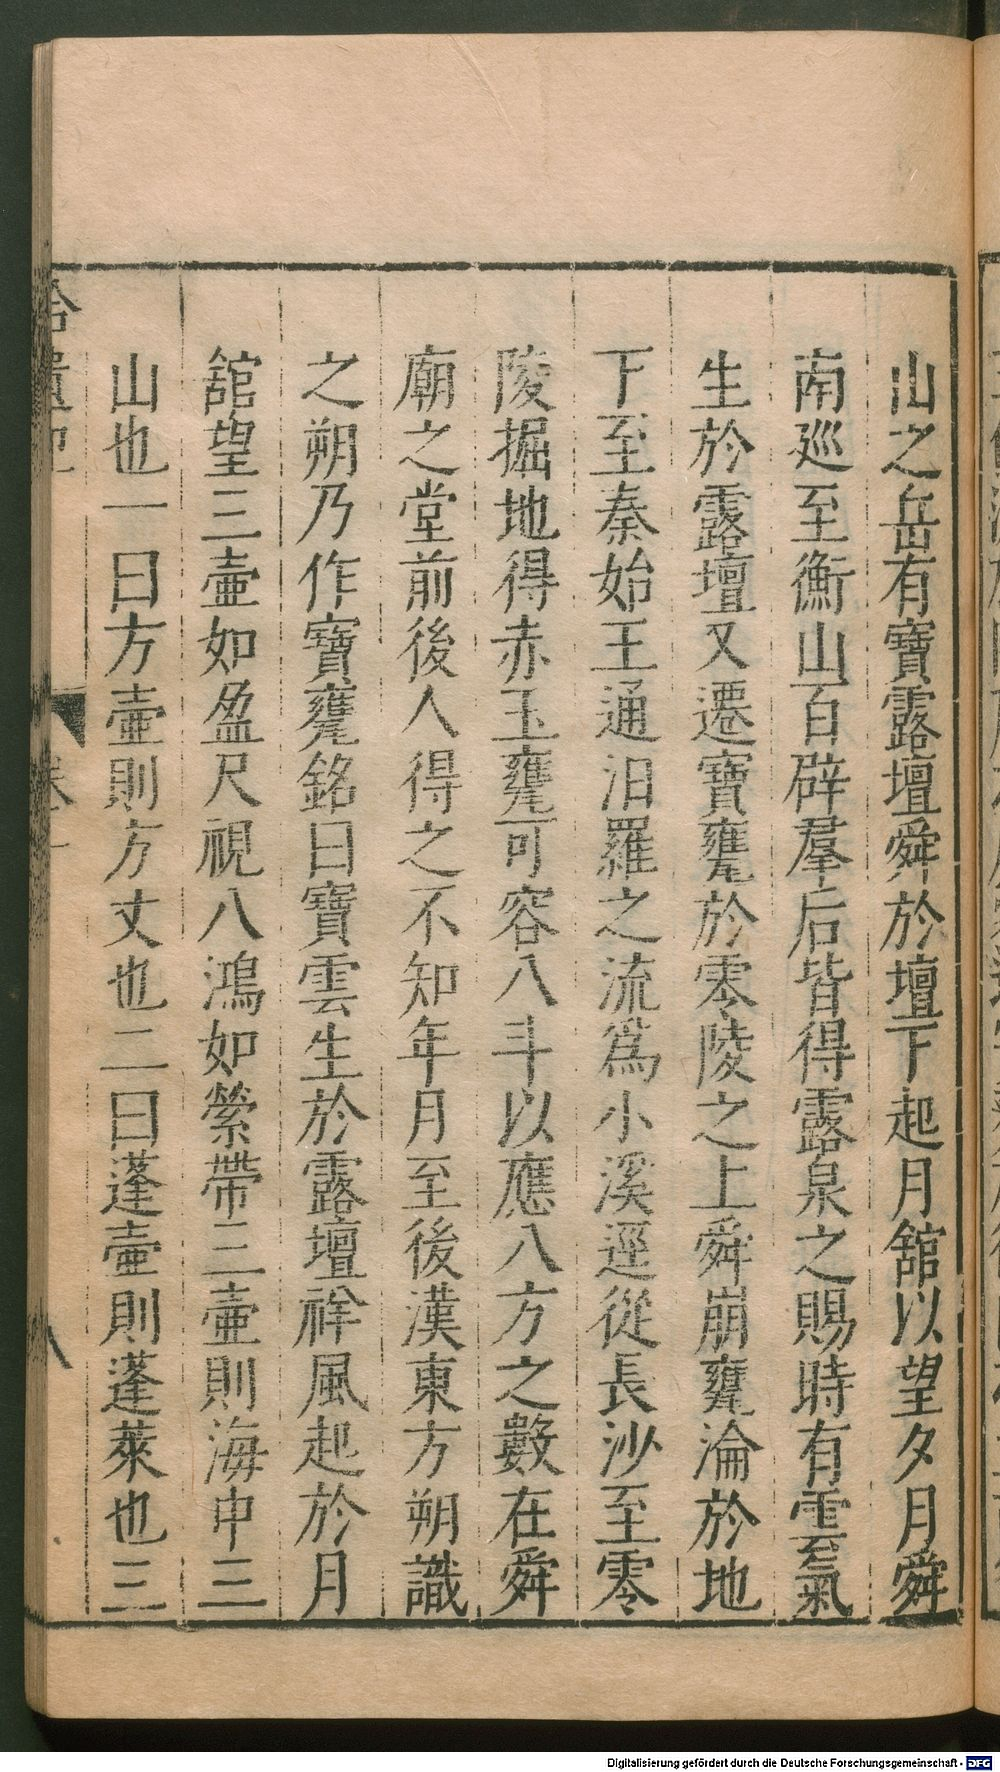 山之岳有寶露壇舜於壇下起月舘以望夕月舜
南廵至衡山百辟羣后皆得露泉之賜時有雲氣
生於露壇又遷寶甕於零陵之上舜崩甕淪於地
下至秦始王通汨羅之流爲小溪逕從長沙至零
陵掘地得赤玉甕可容八斗以應八方之數在舜
廟之堂前後人得之不知年月至後漢東方朔識
之朔乃作寶甕銘曰寶雲生於露壇祥風起於月
舘望三壷如盈尺視八鴻如縈帶三壷則海中三
山也一曰方壷則方丈也二曰蓬壷則蓬萊也三
八
Digitalisierung gefördert durch die Deutsche Forschungsgemeinschaft - DFG